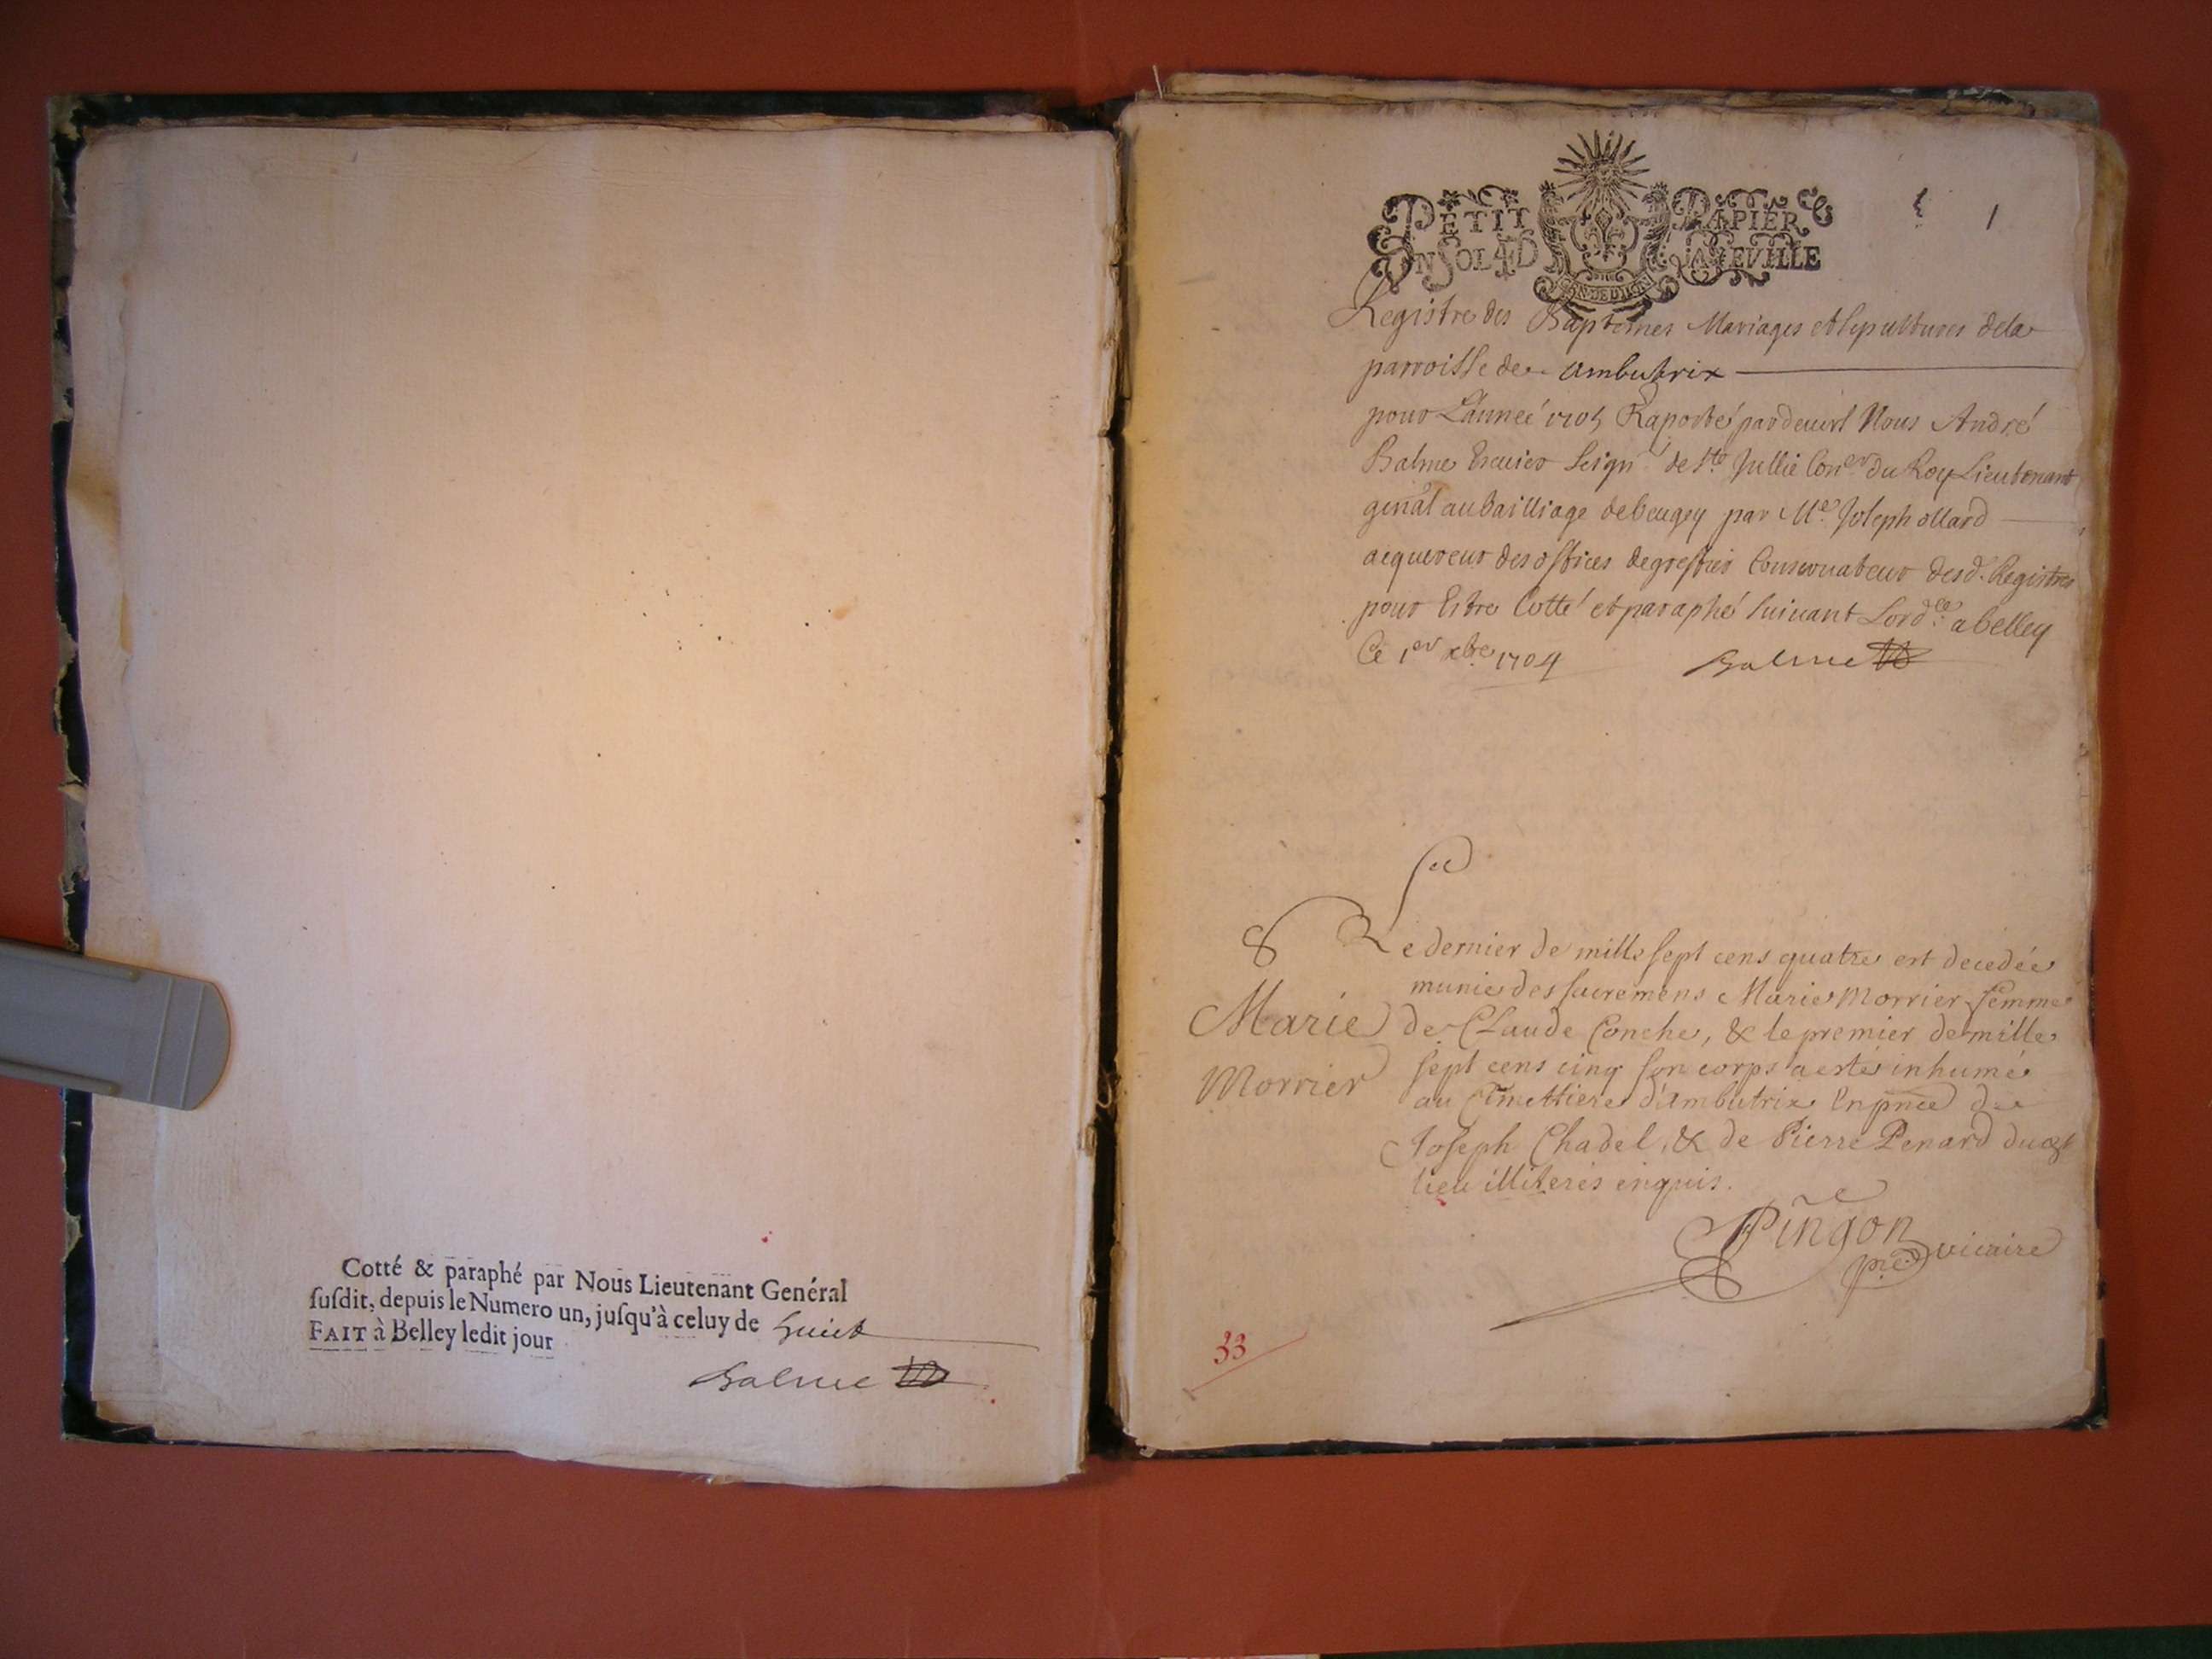 Cotté & paraphé par Nous Lieutenant Genéral
susdit, depuis le Numero un, jusqu'à celuy de huict
FAIT à Belley ledit jour
Balme
PETIT PAPIER
UN SOL 4 D LA FEVILLE
GEN DE DIION
1
Registre des Baptemes Mariages et sepultures dela
parroisse de Ambutrix
pour L'année 1705 Raporté pardevant Nous André
Balme Escuier Seigr de Ste Jullie Coner du Roy Lieutenant
genal au bailliage de beugey par Me Joseph ollard
acquereur des offices de greffier Conservateur desd. Registres
pour Estre Cotté et paraphé suivant Lordce a belley
Ce 1er xbre 1704
Balme
Le dernier de mille sept cens quatre est decedée
munie des sacremens Marie Morrier femme
Marie Morrier
de Claude Conche, & le premier de mille
sept cens cinq son corps a esté inhumé
au Cimettiere d'ambutrix En pnce de
Joseph Chadel, & de Pierre Penard dud
lieu illiteres enquis.
Pingon
pre vicaire
33